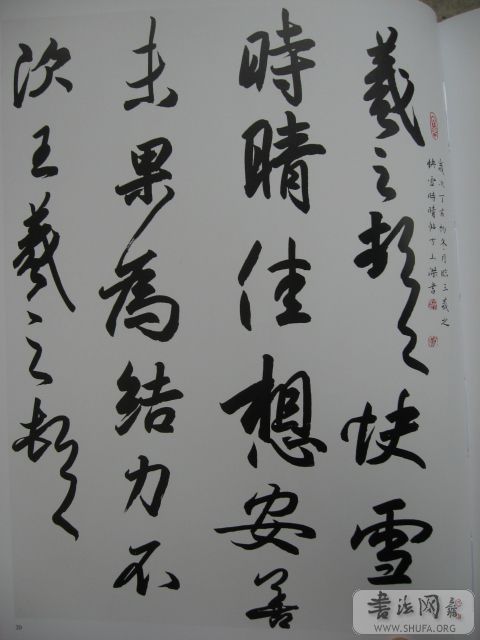 羲之頓首快雪
時晴佳想安善
未果為結力不
次王羲之頓首
歲次丁亥初冬月臨王羲之
快雪時晴帖丁上傑書
39
書法网
WWW.SHUFA.ORG